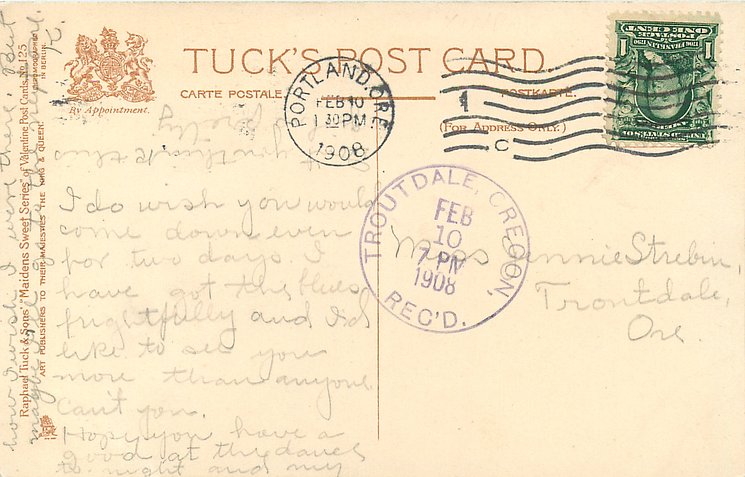 TUCK'S POST CARD.
CARTE POSTALE.
POSTKARTE.
(FOR ADDRESS ONLY.)
By Appointment.
PORTLAND, ORE.
FEB 10
1 30 PM
1908
1
C
TROUTDALE, OREGON,
FEB
10
7 PM
1908
REC'D.
1706 FRANKLIN 1790
POSTAGE
ONE CENT
1
1
Raphael Tuck & Sons' "Maidens Sweet Series" of Valentine Post Cards, No. 125
ART PUBLISHERS TO THEIR MAJESTIES THE KING & QUEEN.
CHROMOGRAPHED
IN BERLIN.
Miss Annie Strebin,
Troutdale,
Ore.
I do wish you would
come down even
for two days. I
have got the blues
frightfully and I'd
like to see you
more than anyone.
Can't you.
Hope you have a
good at the dance
to night and my
how I wish I were there. But
maybe
K.